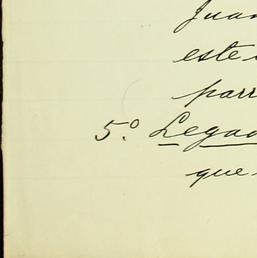 Juan
este
parr
5.º Legad
que